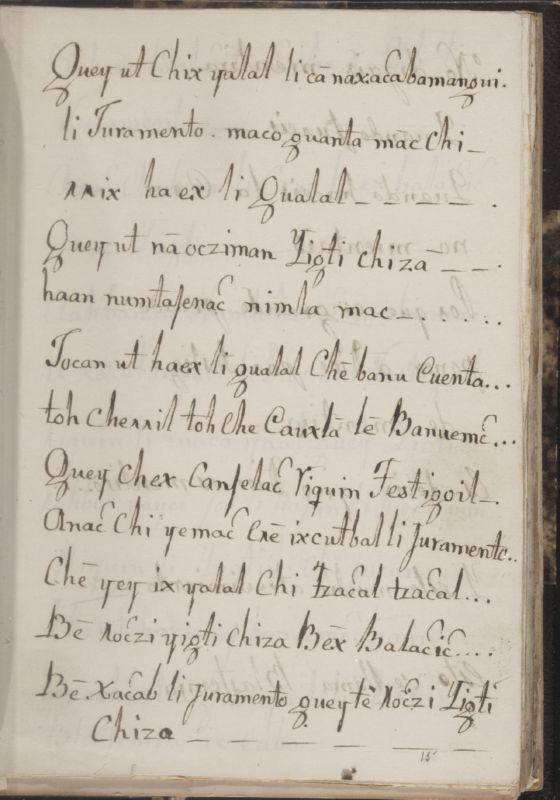 Quey ut Chix yalal li cā naxac̄abamanqui.
li Juramento. maco quanta mac Chi_
rrix haex li Qualal _ _ _ _ .
Quey ut nā ocziman Yigti chiza _ _ .
haan numtasenac̄ nimla mac_ . . . . .
Tocan ut haex li qualal Chē banu Cuenta...
toh cherril toh Che Cauxlā tē Banuemc̄...
Quey chex Canselac̄ riquin Testigoil_
Anac̄ Chi yemac̄ Crē ixcutbal li Juramento..
Chē yey ix yalal Chi tzac̄al tzac̄al...
Bē roc̄zi yigti chiza Bēx Balac̄ic̄....
Bē. Xac̄ab li juramento queytē roc̄zi Yigti
Chiza _ _ _ _ _ _ _
15